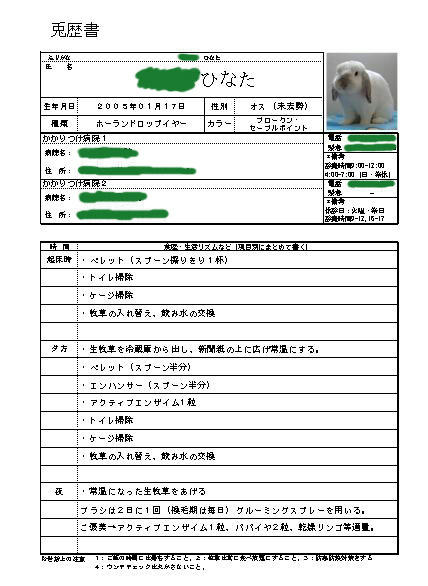 兎歴書
ふりがな ひなた
氏 名
ひなた
生年月日 2005年01月17日 性別 オス（未去勢）
種類 ホーランドロップイヤー カラー ブロークン・
セーブルポイント
かかりつけ病院1 電話
病院名： 緊急
＊備考
住 所： 診療時間9:00-12:00
4:00-7:00（日・祭休）
かかりつけ病院2 電話
病院名： 緊急 －
＊備考
住 所： 休診日：火曜・祭日
診療時間9-12,16-17
時 間 食糧・生活リズムなど（項目別にまとめて書く）
起床時 ・ペレット（スプーン擦りきり1杯）
・トイレ掃除
・ケージ掃除
・牧草の入れ替え、飲み水の交換
夕方 ・生牧草を冷蔵庫から出し、新聞紙の上に広げ常温にする。
・ペレット（スプーン半分）
・エンハンサー（スプーン半分）
・アクティブエンザイム1粒
・トイレ掃除
・ケージ掃除
・牧草の入れ替え、飲み水の交換
夜 ・常温になった生牧草をあげる
ブラシは2日に1回（換毛期は毎日）グルーミングスプレーを用いる。
ご褒美→アクティブエンザイム1粒、パパイヤ2粒、乾燥リンゴ等適量。
4：ウンチチェック出欠かさないこと。